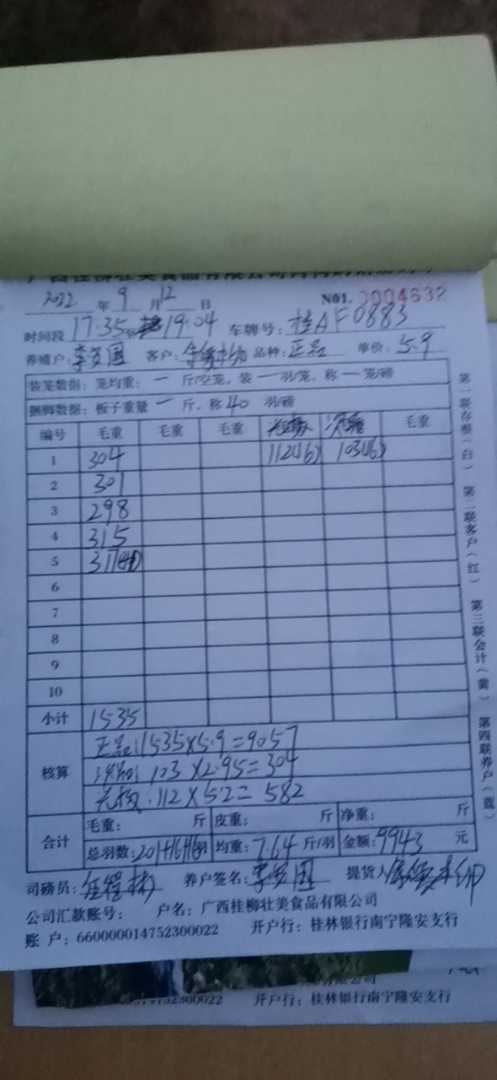 2022 年 9 月 12 日 N01. 0004632
时间段 17:35 19:04 车牌号: 桂AF0883
养殖户: 李 国 客户: 品种: 正品 单价: 5.9
装笼数据: 笼均重: 一 斤/空笼, 装 一 羽/笼, 称 一 笼/磅
捆脚数据: 板子重量 一 斤, 称 40 羽/磅
编号 毛重 毛重 毛重 毛重
1 304 112(16) 103(16)
2 301
3 298
4 315
5 317
6
7
8
9
10
小计 1535
核算 正品:1535×5.9=9057
103×2.95=304
112×5.2=582
合计 毛重: 斤 皮重: 斤 净重: 斤
总羽数: 201+16+16羽 均重: 7.64 斤/羽 金额: 9943 元
司磅员: 养户签名: 李 国 提货人
公司汇款账号: 户名: 广西桂柳壮美食品有限公司
账 户: 660000014752300022 开户行: 桂林银行南宁隆安支行
第一联存根(白) 第二联客户(红) 第三联会计(黄) 第四联养户(蓝)
有限公司
14752300022 开户行: 桂林银行南宁隆安支行